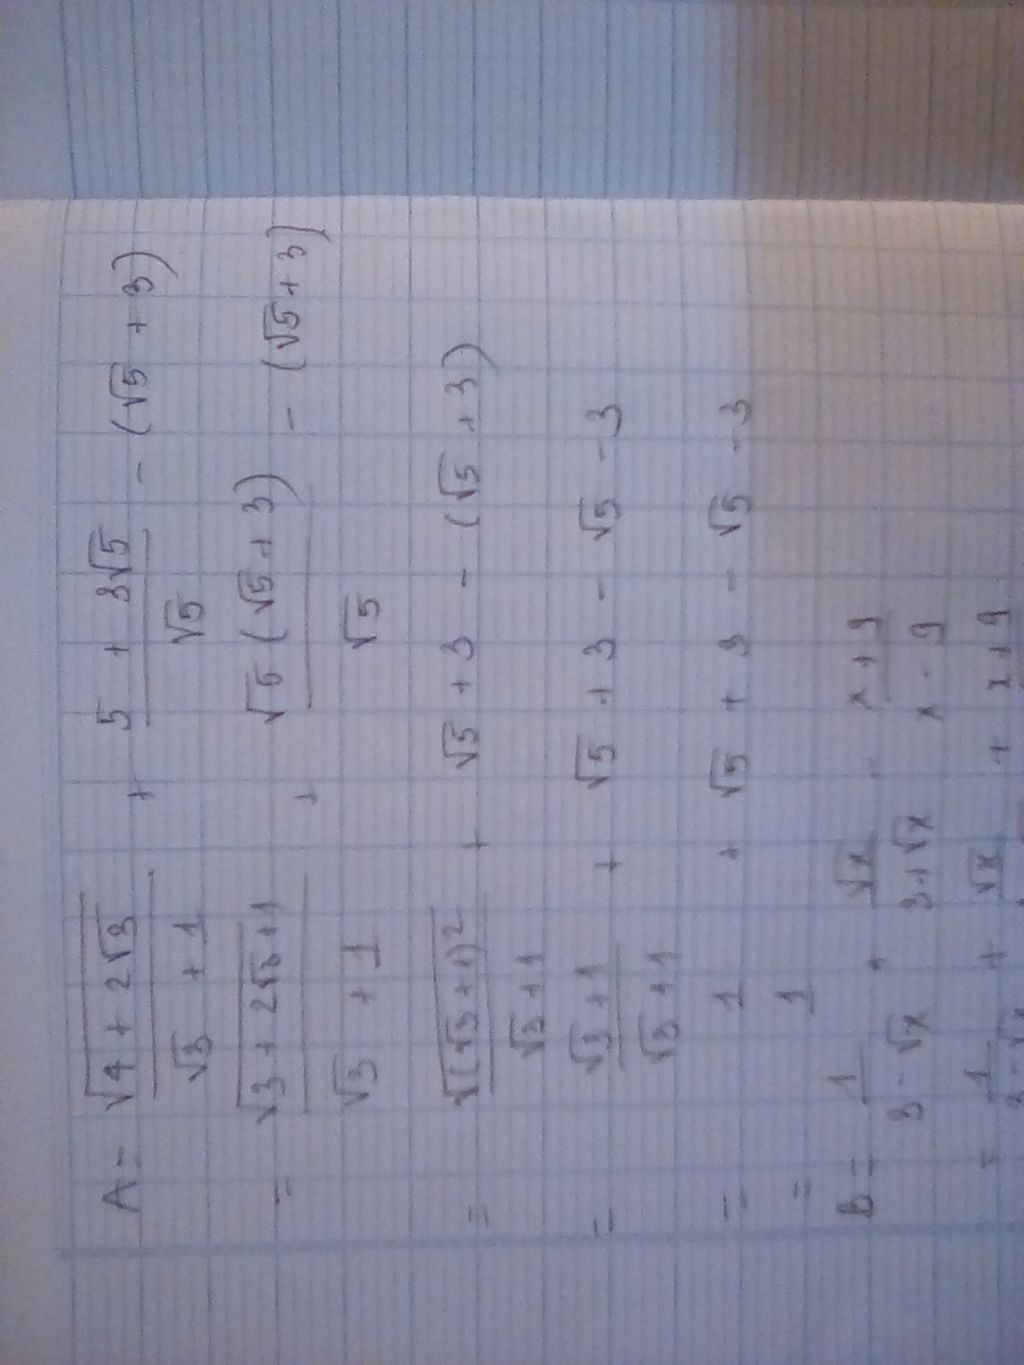 A = √(4 + 2√3) / (√3 + 1) + (5 + 3√5) / √5 - (√5 + 3)
= √(3 + 2√3 + 1) / (√3 + 1) + √5 (√5 + 3) / √5 - (√5 + 3)
= √((√3 + 1)²) / (√3 + 1) + √5 + 3 - (√5 + 3)
= (√3 + 1) / (√3 + 1) + √5 + 3 - √5 - 3
= 1 + √5 + 3 - √5 - 3
= 1
B = 1 / (3 - √x) + √x / (3 + √x) - (x + 9) / (x - 9)
= 1 / (3 - √x) + √x + x + 9